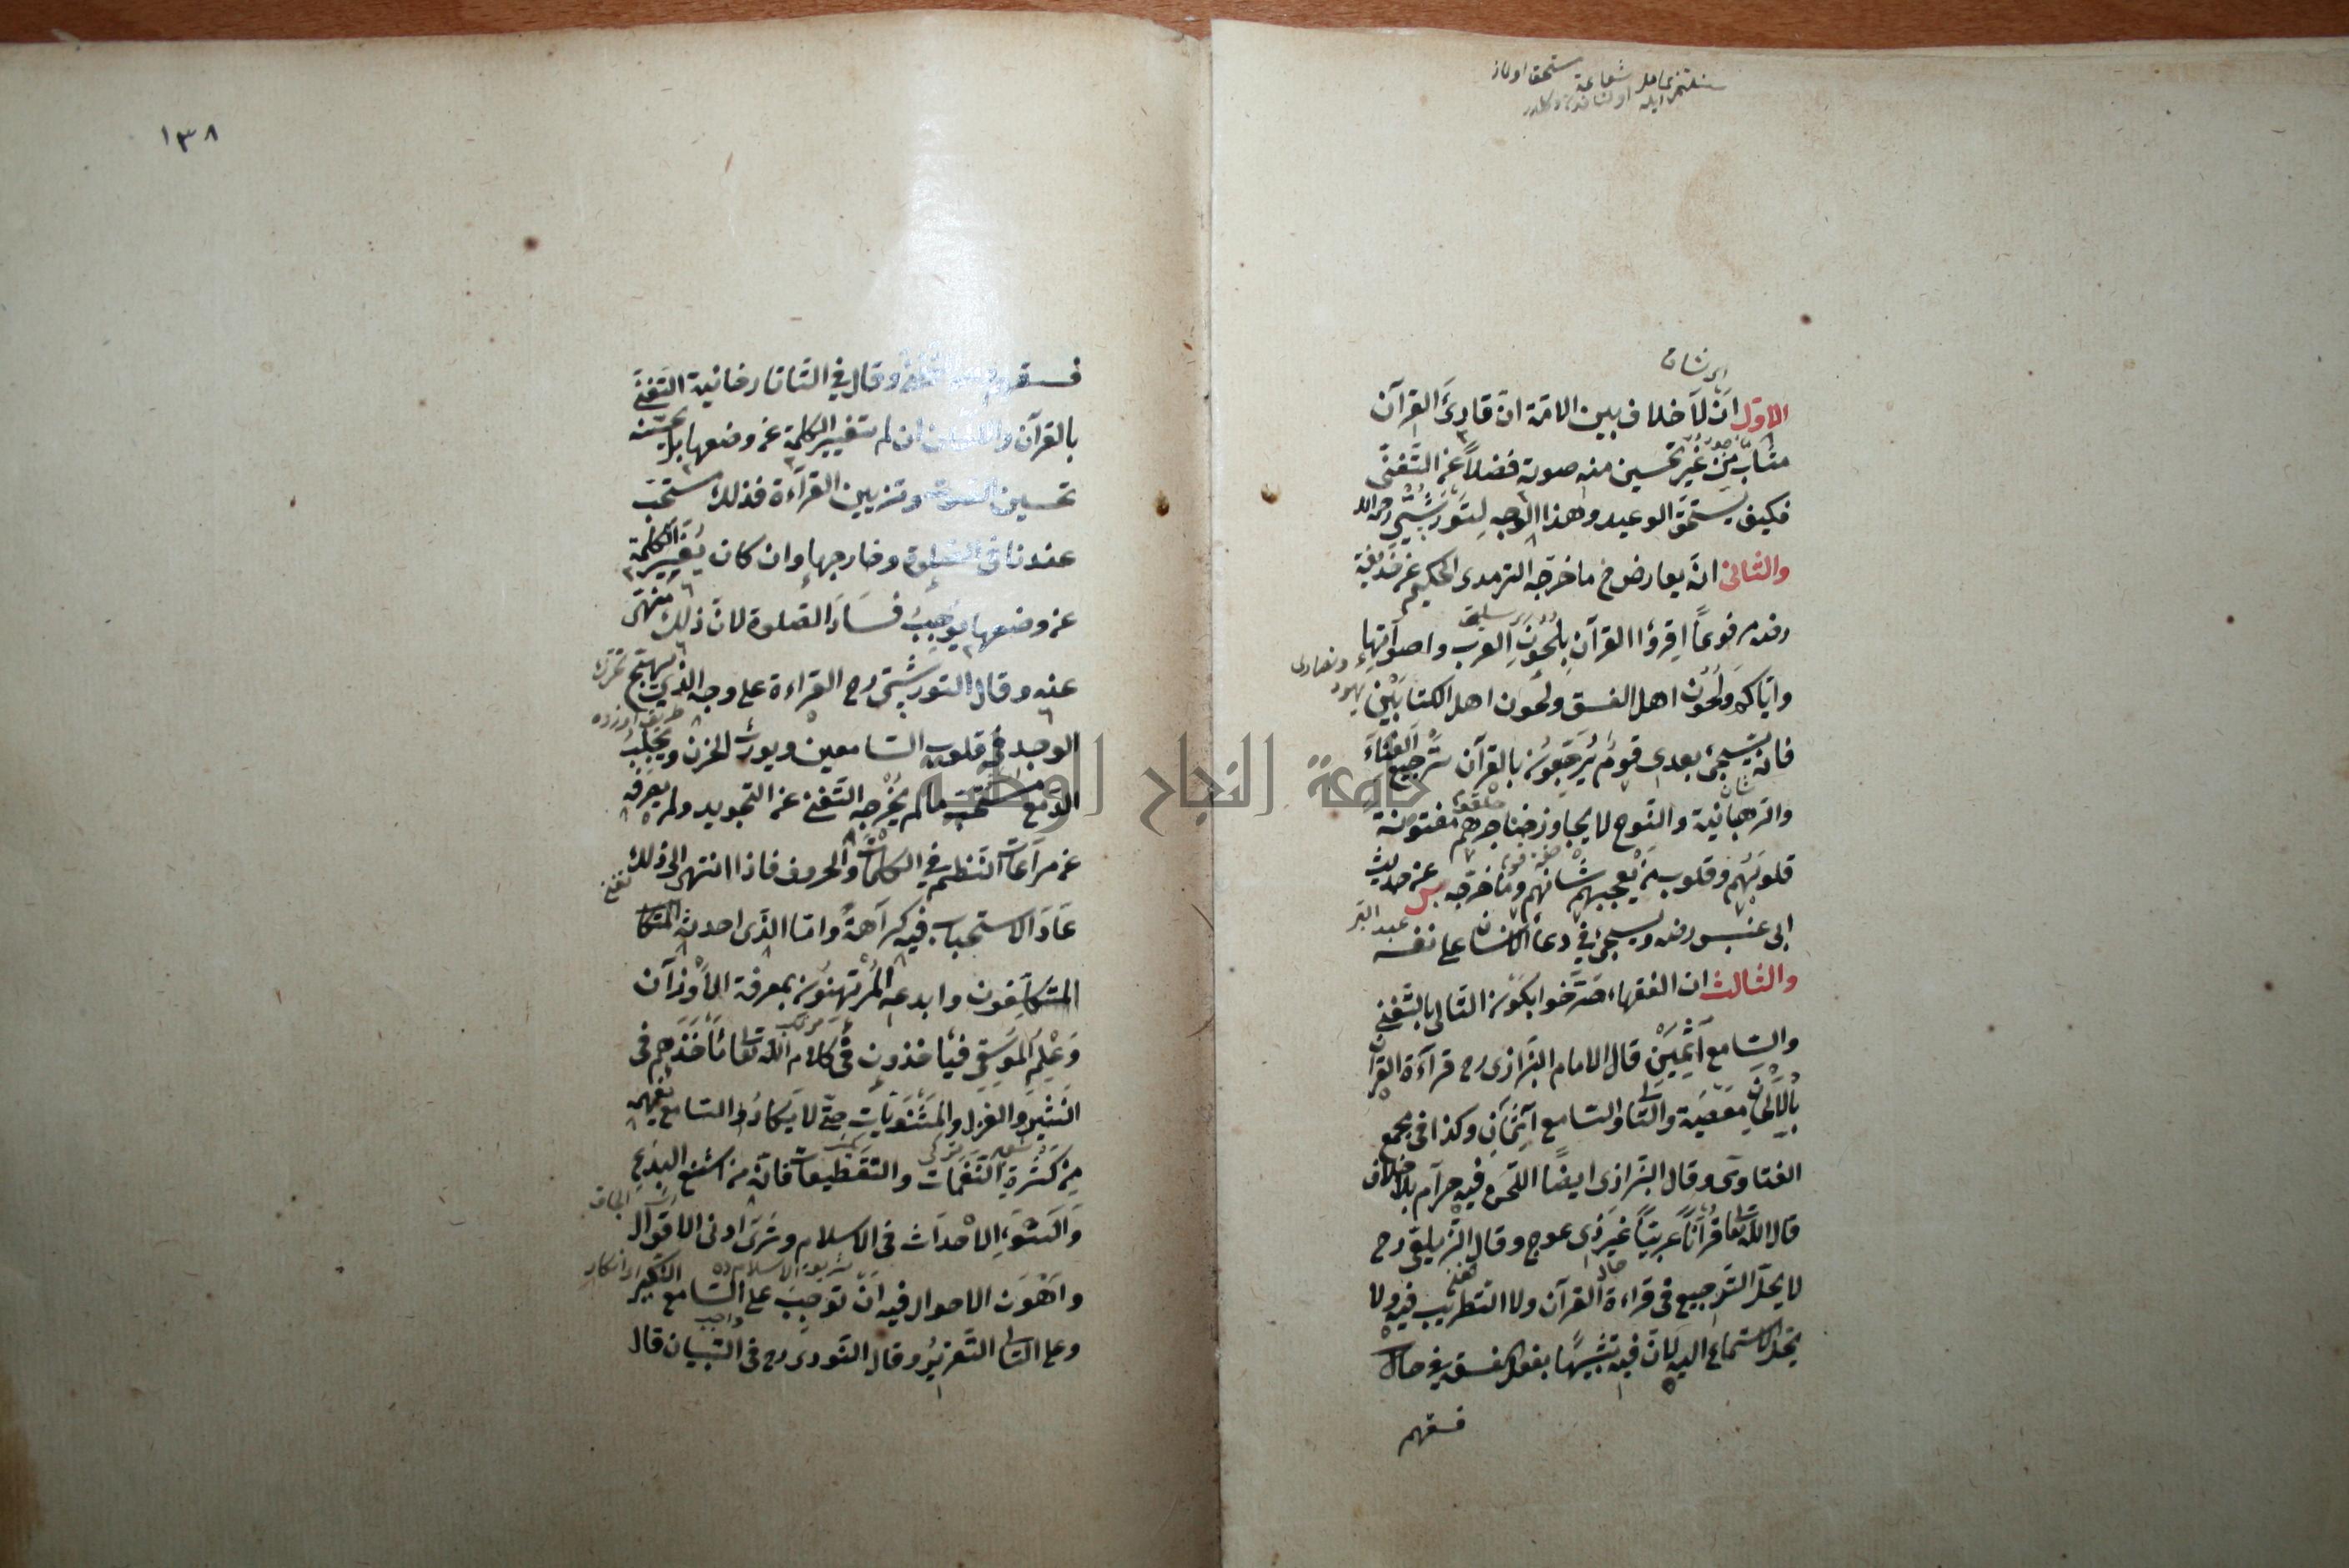 الاول ان لا خلاف بين الامة ان قارئ القرآن
مثاب من غير تحسين منه صوته فضلاً عن التغنى
فكيف يستحق الوعيد وهذا الوجه لتوربشتي رحمه الله
والثانى انه يعارض ما خرّجه الترمدى الحكيم عن حذيفة
رضه مرفوعاً اقرؤا القرآن بلحون العرب واصواتها
واياكم ولحون اهل الفسق ولحون اهل الكتابين
يهود ونصارى
فانه سيجئ بعدى قوم يرجعون بالقرآن ترجيع الغناء
والرهبانية والنوح لا يجاوز حناجرهم مفتونة
قلوبهم وقلوب من يعجبهم شانهم وما خرّجه عن حديث
ابى عنبس رضه ويسجئ في دعاء الانسان على نفسه
والثالث ان الفقهاء صرّحوا بكون التالى بالتغنى
والسامع آثمين قال الامام البزازى رح قراءة القرآن
بالالحان معصية والتالى والسامع آثمان وكذا فى مجمع
الفتاوى وقال البزازى ايضا اللحن فيه حرام بلا خلاف
قال الله تعا قرآناً عربيّاً غير ذى عوج وقال الزيلعى رح
لا يحل الترجيع فى قراءة القرآن ولا التطريب فيه ولا
يحل الاستماع اليه لان فيه تشبيهًا بفعل الفسقة في حال
فسقهم
١٣٨
فسقهم وقال في التاتارخانية التغنى
بالقرآن والالحان ان لم تغيير الكلمة عن وضعها بل يحسّنه
تحسين الصوت وتزيين القراءة فذلك مستحب
عندنا فى الصلوة وخارجها وان كان يغيير الكلمة
عن وضعها يوجب فساد الصلوة لان ذلك منهى
عنه وقال التوربشتى رح القراءة على وجه الذى يهيّج
الوجد في قلوب السامعين ويورث الحزن ويجلب
الدمع مستحب ما لم يخرجه التغنى عن التجويد ولم يصرفه
عن مراعات النظم في الكلمات والحروف فاذا انتهى الى ذلك
عاد الاستحباب فيه كراهة واما الذى احدثه
المتكلفون وابدعه المرتهنون بمعرفة الاوزان
وعلم الموسيقى فياخذون فى كلام الله تعا مأخذهم فى
النشير والغزل والمثنويات حتى لا يكاد السامع يفهمه
من كثرة النغمات والتقطيعات فانه من اشنع البدع
واسوء الاحداث فى الاسلام ونرى ادنى الاقوال
واهون الاحوال فيه ان توجب على السامع النكير
وعلى التالى التعزير وقال النووى رح فى التبيان قال
جامعة النجاح الوطنية